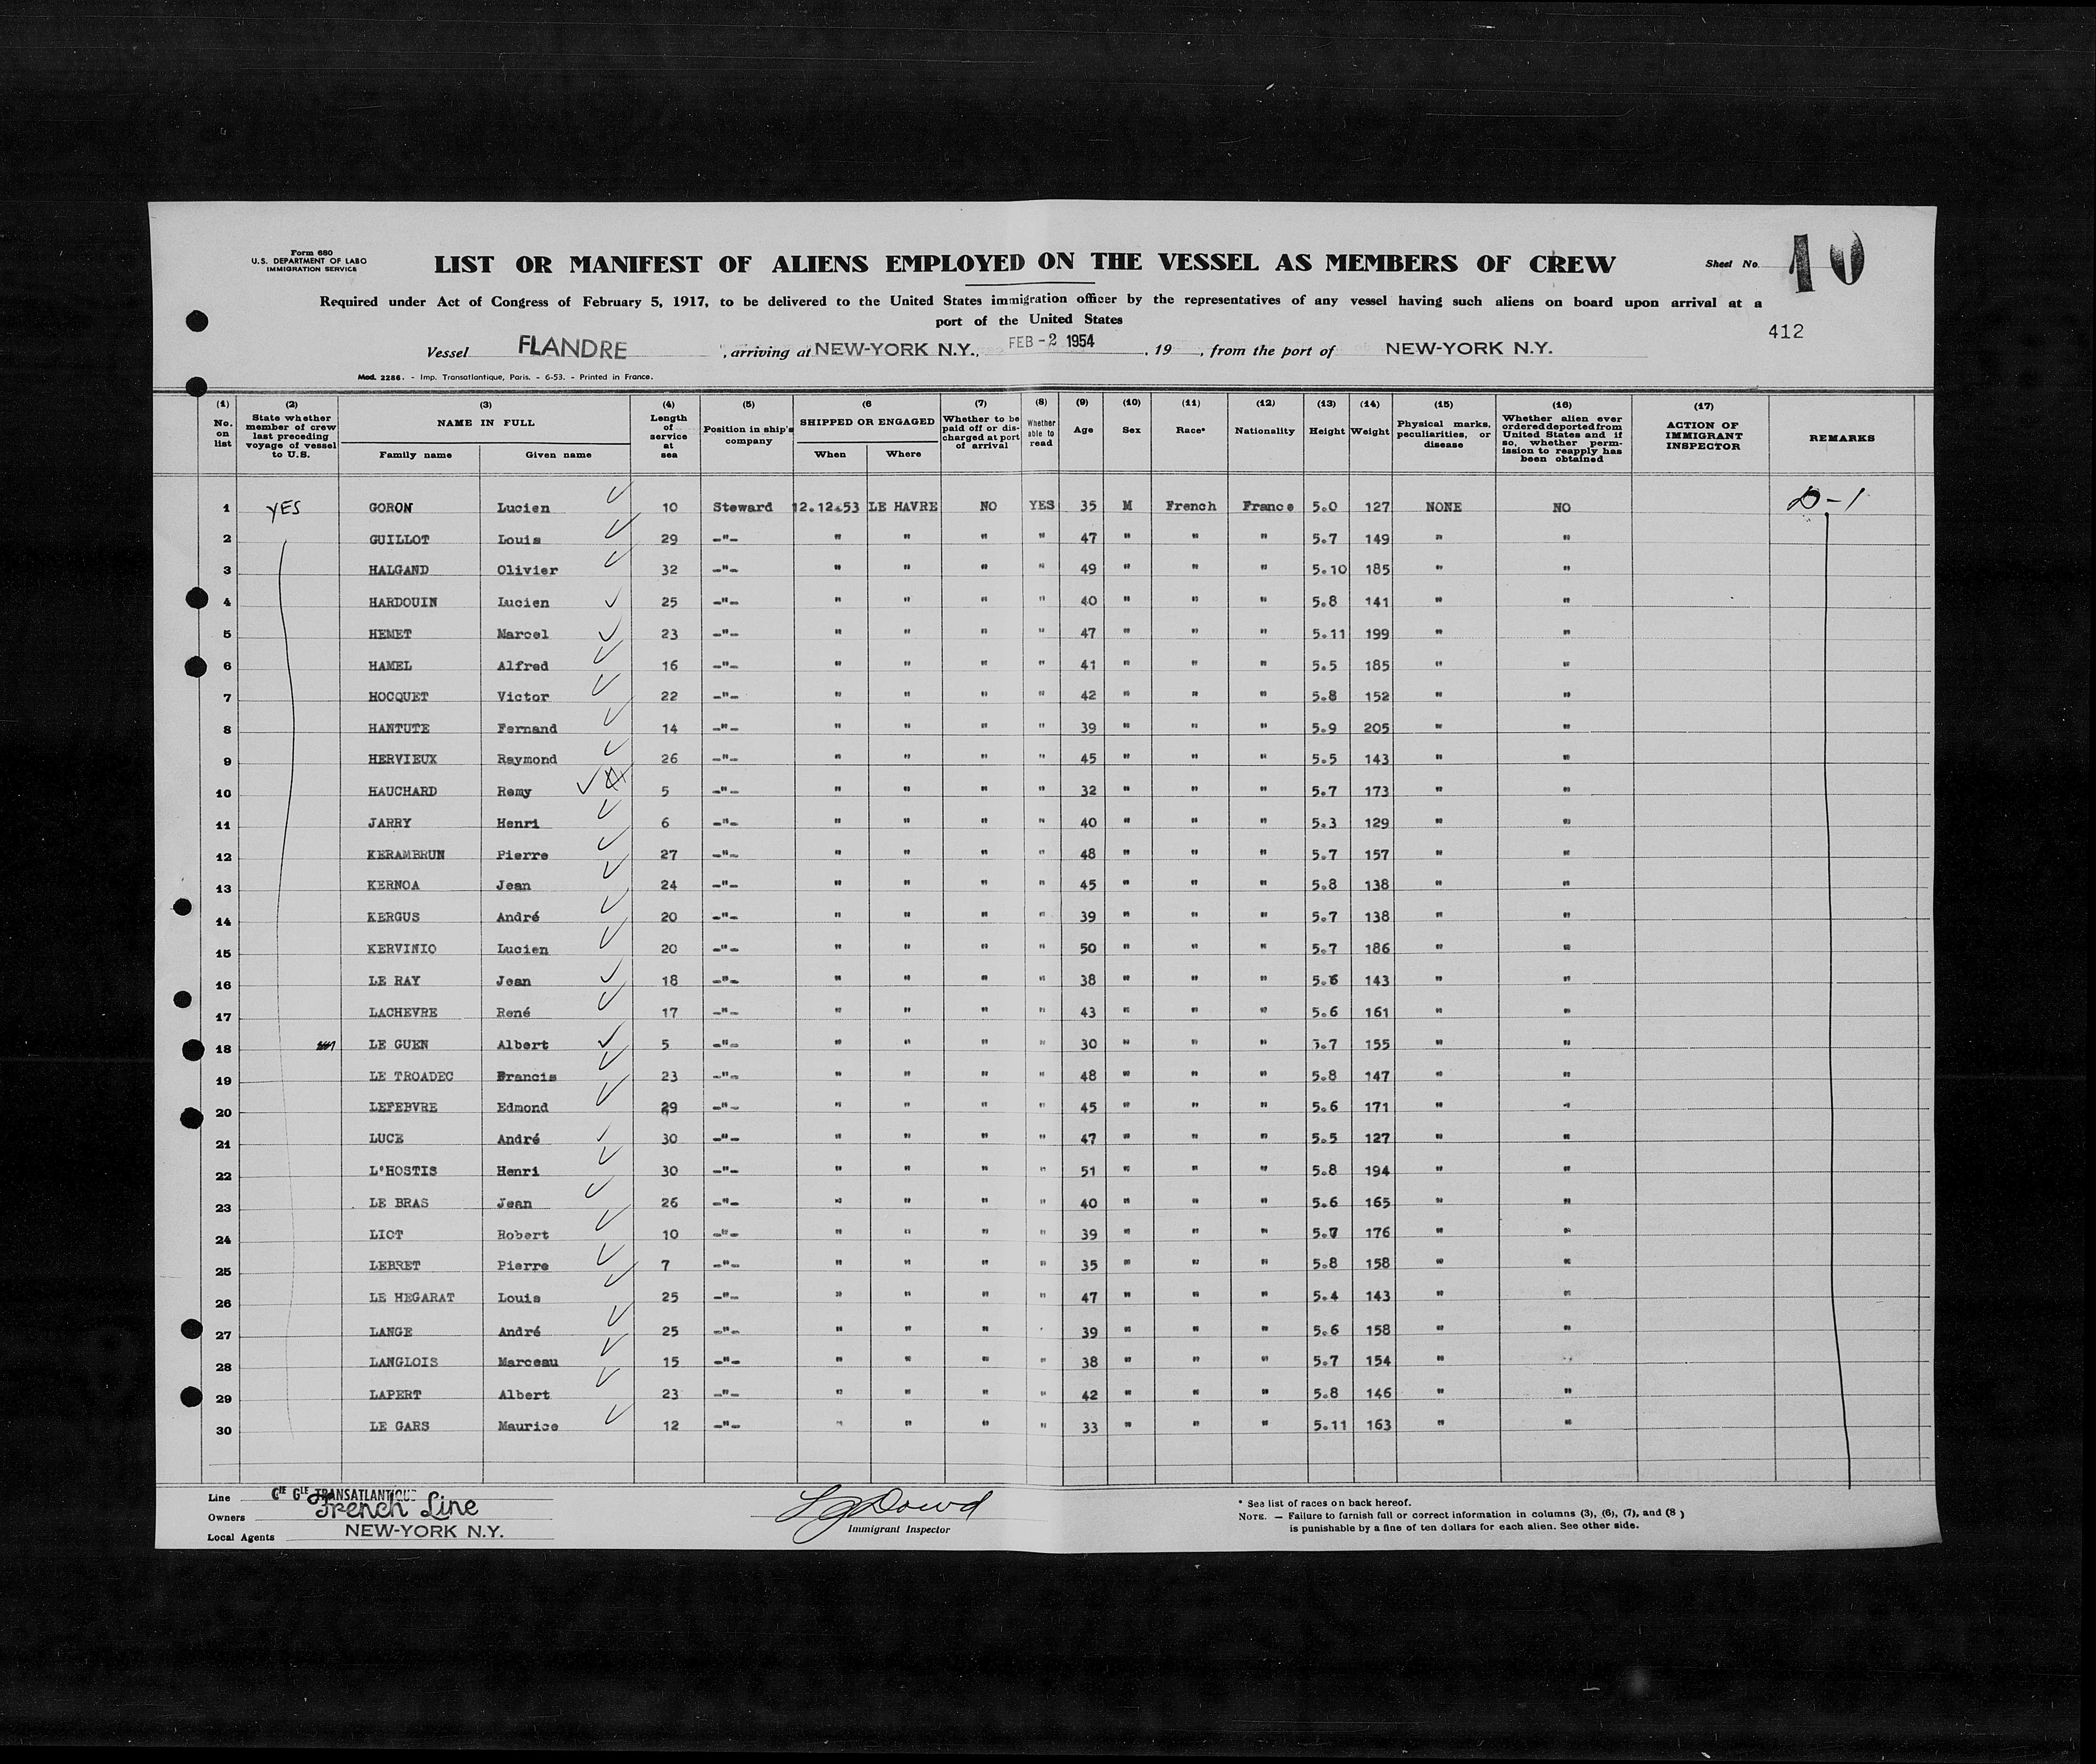 Form 680
U.S. DEPARTMENT OF LABO
IMMIGRATION SERVICE
LIST OR MANIFEST OF ALIENS EMPLOYED ON THE VESSEL AS MEMBERS OF CREW
Sheet No. 10
Required under Act of Congress of February 5, 1917, to be delivered to the United States immigration officer by the representatives of any vessel having such aliens on board upon arrival at a
port of the United States
412
Vessel FLANDRE, arriving at NEW-YORK N.Y., FEB -2 1954, 19 , from the port of NEW-YORK N.Y.
Mod. 2286. - Imp. Transatlantique, Paris. - 6-53. - Printed in France.
(1) No. on list (2) State whether member of crew last preceding voyage of vessel to U.S. (3) NAME IN FULL Family name Given name (4) Length of service at sea (5) Position in ship's company (6 SHIPPED OR ENGAGED When Where (7) Whether to be paid off or discharged at port of arrival (8) Whether able to read (9) Age (10) Sex (11) Race* (12) Nationality (13) Height (14) Weight (15) Physical marks, peculiarities, or disease (16) Whether alien ever ordered deported from United States and if so, whether permission to reapply has been obtained (17) ACTION OF IMMIGRANT INSPECTOR REMARKS
1 YES GORON Lucien 10 Steward 12.12.53 LE HAVRE NO YES 35 M French France 5.0 127 NONE NO D-1
2 GUILLOT Louis 29 -"- " " " " 47 " " " 5.7 149 " "
3 HALGAND Olivier 32 -"- " " " " 49 " " " 5.10 185 " "
4 HARDOUIN Lucien 25 -"- " " " " 40 " " " 5.8 141 " "
5 HEMET Marcel 23 -"- " " " " 47 " " " 5.11 199 " "
6 HAMEL Alfred 16 -"- " " " " 41 " " " 5.5 185 " "
7 HOCQUET Victor 22 -"- " " " " 42 " " " 5.8 152 " "
8 HANTUTE Fernand 14 -"- " " " " 39 " " " 5.9 205 " "
9 HERVIEUX Raymond 26 -"- " " " " 45 " " " 5.5 143 " "
10 HAUCHARD Remy 5 -"- " " " " 32 " " " 5.7 173 " "
11 JARRY Henri 6 -"- " " " " 40 " " " 5.3 129 " "
12 KERAMBRUN Pierre 27 -"- " " " " 48 " " " 5.7 157 " "
13 KERNOA Jean 24 -"- " " " " 45 " " " 5.8 138 " "
14 KERGUS André 20 -"- " " " " 39 " " " 5.7 138 " "
15 KERVINIO Lucien 20 -"- " " " " 50 " " " 5.7 186 " "
16 LE RAY Jean 18 -"- " " " " 38 " " " 5.6 143 " "
17 LACHEVRE René 17 -"- " " " " 43 " " " 5.6 161 " "
18 LE GUEN Albert 5 -"- " " " " 30 " " " 5.7 155 " "
19 LE TROADEC Francis 23 -"- " " " " 48 " " " 5.8 147 " "
20 LEFEBVRE Edmond 29 -"- " " " " 45 " " " 5.6 171 " "
21 LUCE André 30 -"- " " " " 47 " " " 5.5 127 " "
22 L'HOSTIS Henri 30 -"- " " " " 51 " " " 5.8 194 " "
23 LE BRAS Jean 26 -"- " " " " 40 " " " 5.6 165 " "
24 LIOT Robert 10 -"- " " " " 39 " " " 5.7 176 " "
25 LEBRET Pierre 7 -"- " " " " 35 " " " 5.8 158 " "
26 LE HEGARAT Louis 25 -"- " " " " 47 " " " 5.4 143 " "
27 LANGE André 25 -"- " " " " 39 " " " 5.6 158 " "
28 LANGLOIS Marceau 15 -"- " " " " 38 " " " 5.7 154 " "
29 LAPERT Albert 23 -"- " " " " 42 " " " 5.8 146 " "
30 LE GARS Maurice 12 -"- " " " " 33 " " " 5.11 163 " "
Line CIE GLE TRANSATLANTIQUE
Owners French Line
Local Agents NEW-YORK N.Y.
Immigrant Inspector
* See list of races on back hereof.
NOTE. — Failure to furnish full or correct information in columns (3), (6), (7), and (8 )
is punishable by a fine of ten dollars for each alien. See other side.